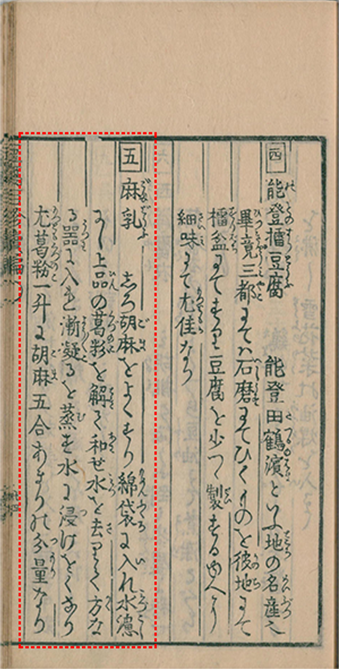 四 能登擂豆腐 能登田鶴濱といふ地の名産也
畢竟三都にてハ石磨にてひくものを彼地にて
擂盆にてすりて豆腐を少づゝ製するゆへなり
細味にて尤佳なり
五 麻乳 しろ胡麻をよくすり綿袋に入れ水漉
にし上品の葛粉を解き和せ水を去りて方な
る器に入れ漸凝るを蒸し水に浸けをくなり
尤葛粉一升に胡麻五合あまりの分量なり